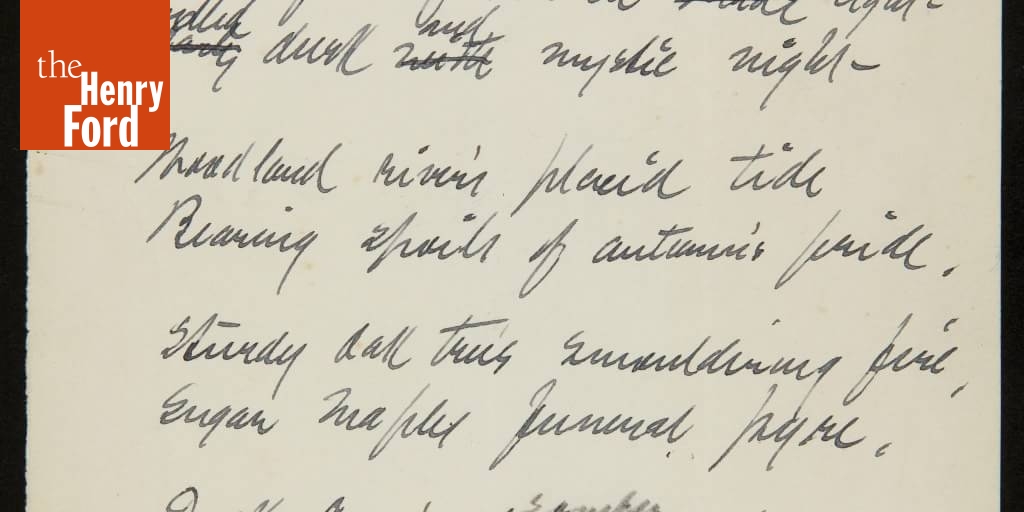 the
Henry
Ford
dusk mystic night—
Woodland river's placid tide
Bearing spoils of autumn's pride.
Sturdy oak tree's smouldering fire,
Sugar maples funeral pyre.